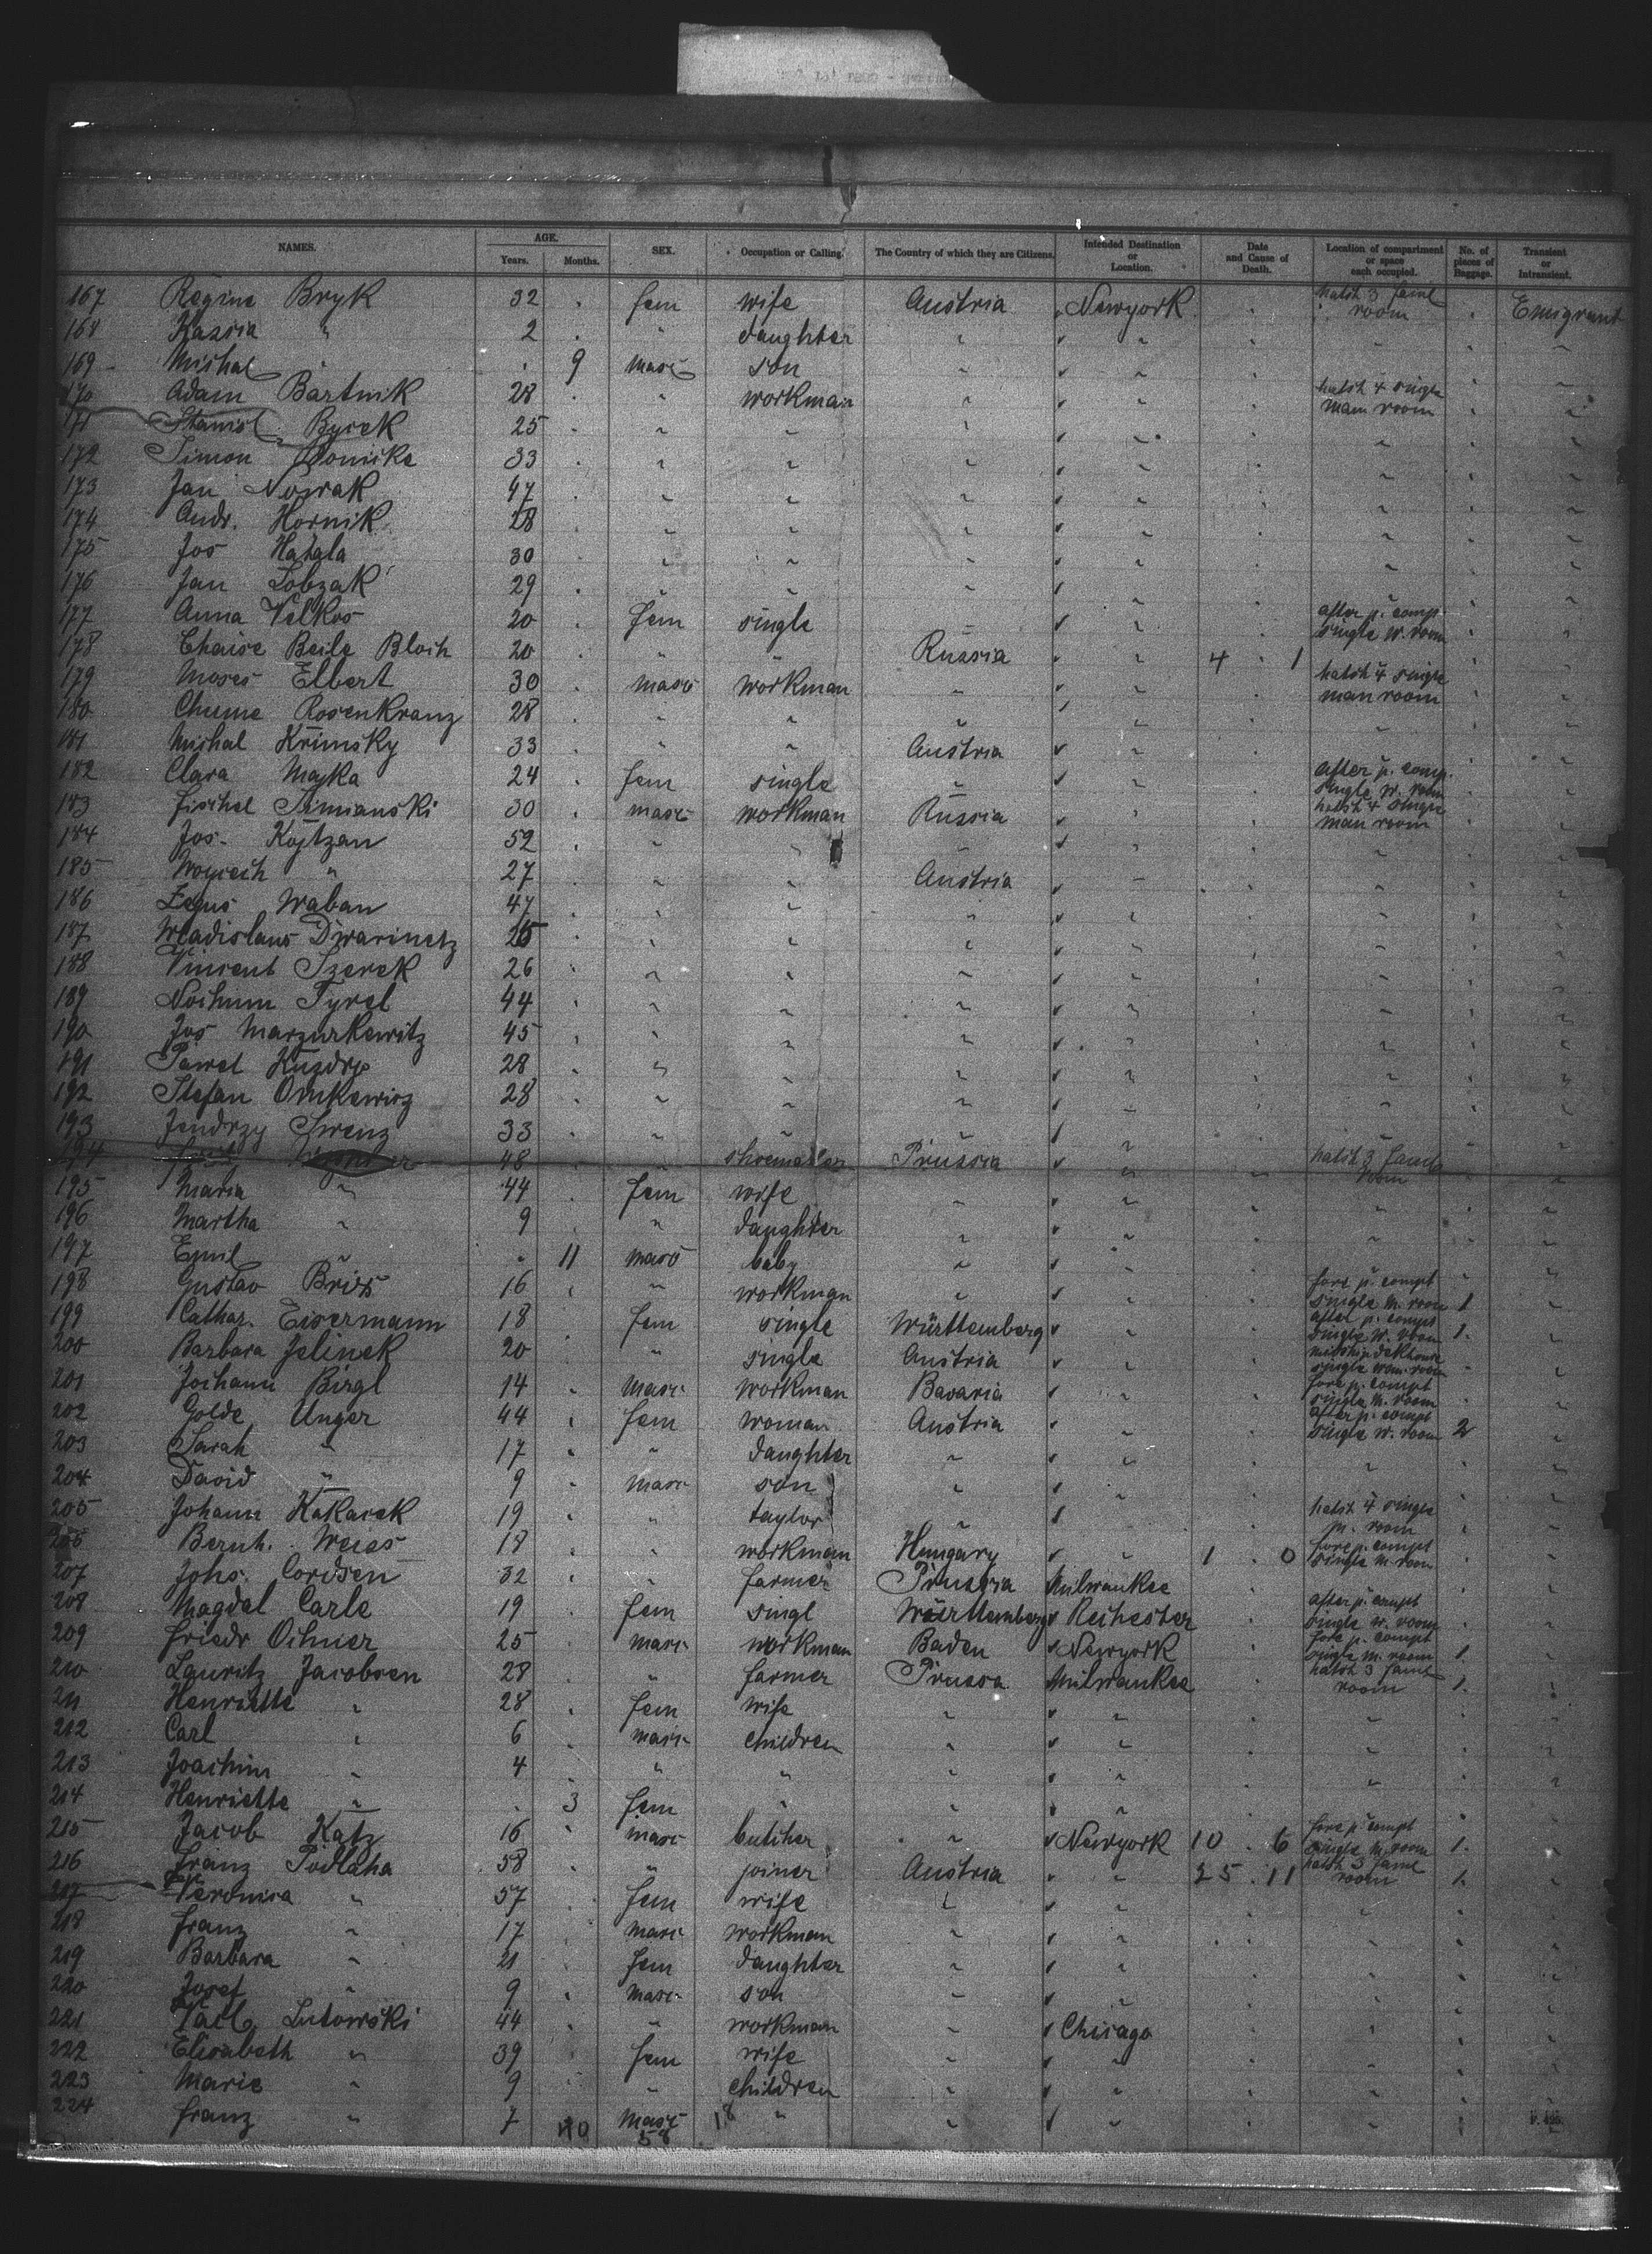 NAMES. AGE. Years. Months. SEX. Occupation or Calling. The Country of which they are Citizens. Intended Destination or Location. Date and Cause of Death. Location of compartment or space each occupied. No. of pieces of Baggage. Transient or Intransient.
167 Regine Bryk 32 fem wife Austria Newyork hatch 3 faml room Emigrant
168 Kassia " 2 " daughter " "
169 Michal " 9 masc son " "
170 Adam Bartnik 28 " workman " " hatch 4 single man room
171 Stanisl. Byrek 25 " " " "
172 Simon 33 " " " "
173 Jan Nowak 47 " " " "
174 Andr. Hornik 28 " " " "
175 Jos Hatala 30 " " " "
176 Jan Lobzak 29 " " " "
177 Anna Velkos 20 fem single " " after p. comp. single w. room
178 Chaise Beile Bloch 20 " " Russia " 4 . 1
179 Moses Elbert 30 masc workman " " hatch 4 single man room
180 Chume Rosenkranz 28 " " " "
181 Michal Krimsky 33 " " Austria "
182 Clara Majka 24 fem single " " after p. comp. single w. room
183 Fischel Simianski 30 masc workman Russia " hatch 4 single man room
184 Jos. Kojtzan 52 " " " "
185 Woyciech " 27 " " Austria "
186 Waban 47 " " " "
187 Wladislaus Dwarinetz " " " "
188 Vincent Szerek 26 " " " "
189 Nochum Tyrel 44 " " " "
190 Jos Marzurkewitz 45 " " " "
191 Pawel Kuzdry 28 " " " "
192 Stefan Omkewicz 28 " " " "
193 Jendrzy Swenz 33 " " " "
194 48 " shoemaker Prussia " hatch 3 faml room
195 Maria " 44 fem wife " "
196 Martha " 9 " daughter " "
197 Emil " 11 masc baby " "
198 Gustav Briex 16 " workman " " fore p. compt single m. room 1
199 Cathar. Eisermann 18 fem single Württemberg " after p. compt single w. room 1.
200 Barbara Jelinek 20 " single Austria " midship dekhouse single wom. room
201 Johann Birgl 14 masc workman Bavaria " fore p. compt single m. room
202 Golde Unger 44 fem woman Austria " after p. compt single w. room 2
203 Sarah " 17 " daughter " "
204 David " 9 masc son " "
205 Johann Kakarek 19 " taylor " " hatch 4 single m. room
206 Bernh. Weiss 18 " workman Hungary " 1 . 0 fore p. compt single m. room
207 Johs. Cordsen 32 " farmer Prussia Milwaukee
208 Magdal Carle 19 fem singl Württemberg Rochester after p. compt single w. room
209 Friedr Ochner 25 masc workman Baden Newyork fore p. compt single m. room 1.
210 Lauritz Jacobsen 28 " farmer Prussa Milwaukee hatch 3 faml room 1.
211 Henriette " 28 fem wife " "
212 Carl " 6 masc children " "
213 Joachim " 4 " " " "
214 Henriette " 3 fem " " "
215 Jacob Katz 16 masc butcher " Newyork 10 . 6 fore p. compt single m. room 1.
216 Franz Podlaha 58 " joiner Austria " 25 . 11 hatch 3 faml room 1.
217 Veronica " 57 fem wife " "
218 Franz " 17 masc workman " "
219 Barbara " 21 fem daughter " "
220 Josef " 9 masc son " "
221 Lutowski 44 " workman " Chicago
222 Elisabeth " 39 fem wife " "
223 Marie " 9 " children " "
224 Franz " 7 masc " " "
40 58 18